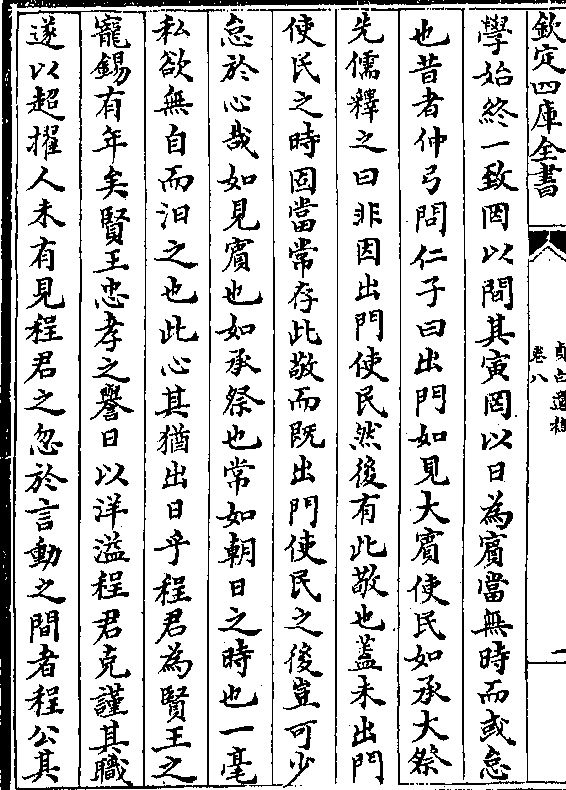 欽定四庫全書
卷八
學始終一致罔以間其寅罔以日為賓當無時而或怠
也昔者仲弓問仁子曰出門如見大賓使民如承大祭
先儒釋之曰非因出門使民然後有此敬也蓋未出門
使民之時固當常存此敬而既出門使民之後豈可少
怠於心哉如見賓也如承祭也常如朝日之時也一毫
私欲無自而汩之也此心其猶出日乎程君為賢王之
寵錫有年矣賢王忠孝之譽日以洋溢程君克謹其職
遂以超擢人未有見程君之忽於言動之間者程公其